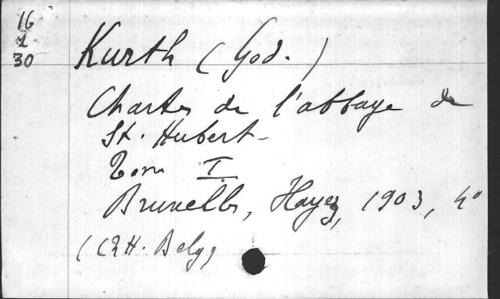 16
L
30
Kurth (God.)
Chartes de l'abbaye de
St. Hubert
Tom I.
Bruxelles, Hayez, 1903, 4°
(CRH. Belg)